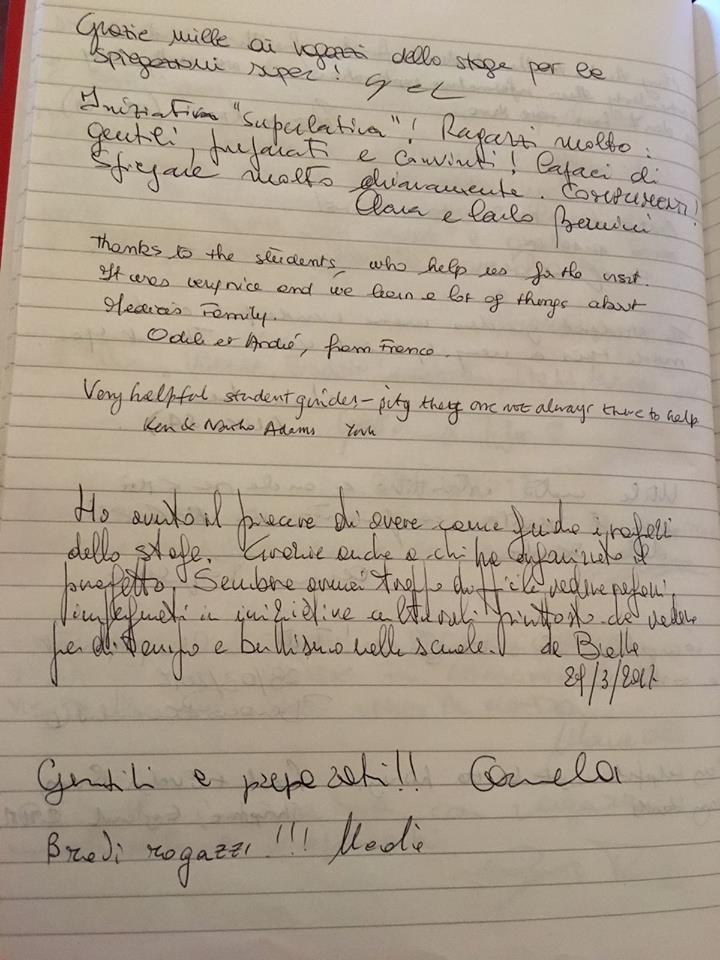 Grazie mille ai ragazzi dello stage per le
spiegazioni super!
Iniziativa "superlativa"! Ragazzi molto:
gentili, preparati e convinti! Capaci di
spiegare molto chiaramente. Complimenti!
Clara e Carlo Bernini
Thanks to the students, who help us for the visit.
It was very nice and we learn a lot of things about
Medicis Family.
Odile et André, from France.
Very helpful student guides - pity they are not always there to help
Ken & Adams York
Ho avuto il piacere di avere come guide i ragazzi
dello stage. Grazie anche a chi ha organizzato il
progetto. Sembra ormai troppo difficile vedere ragazzi
impegnati in iniziative culturali piuttosto che vedere
perdi tempo e bullismo nelle scuole. da Biella
29/3/2017
Gentili e preparati!! Carmela
Bravi ragazzi!!!